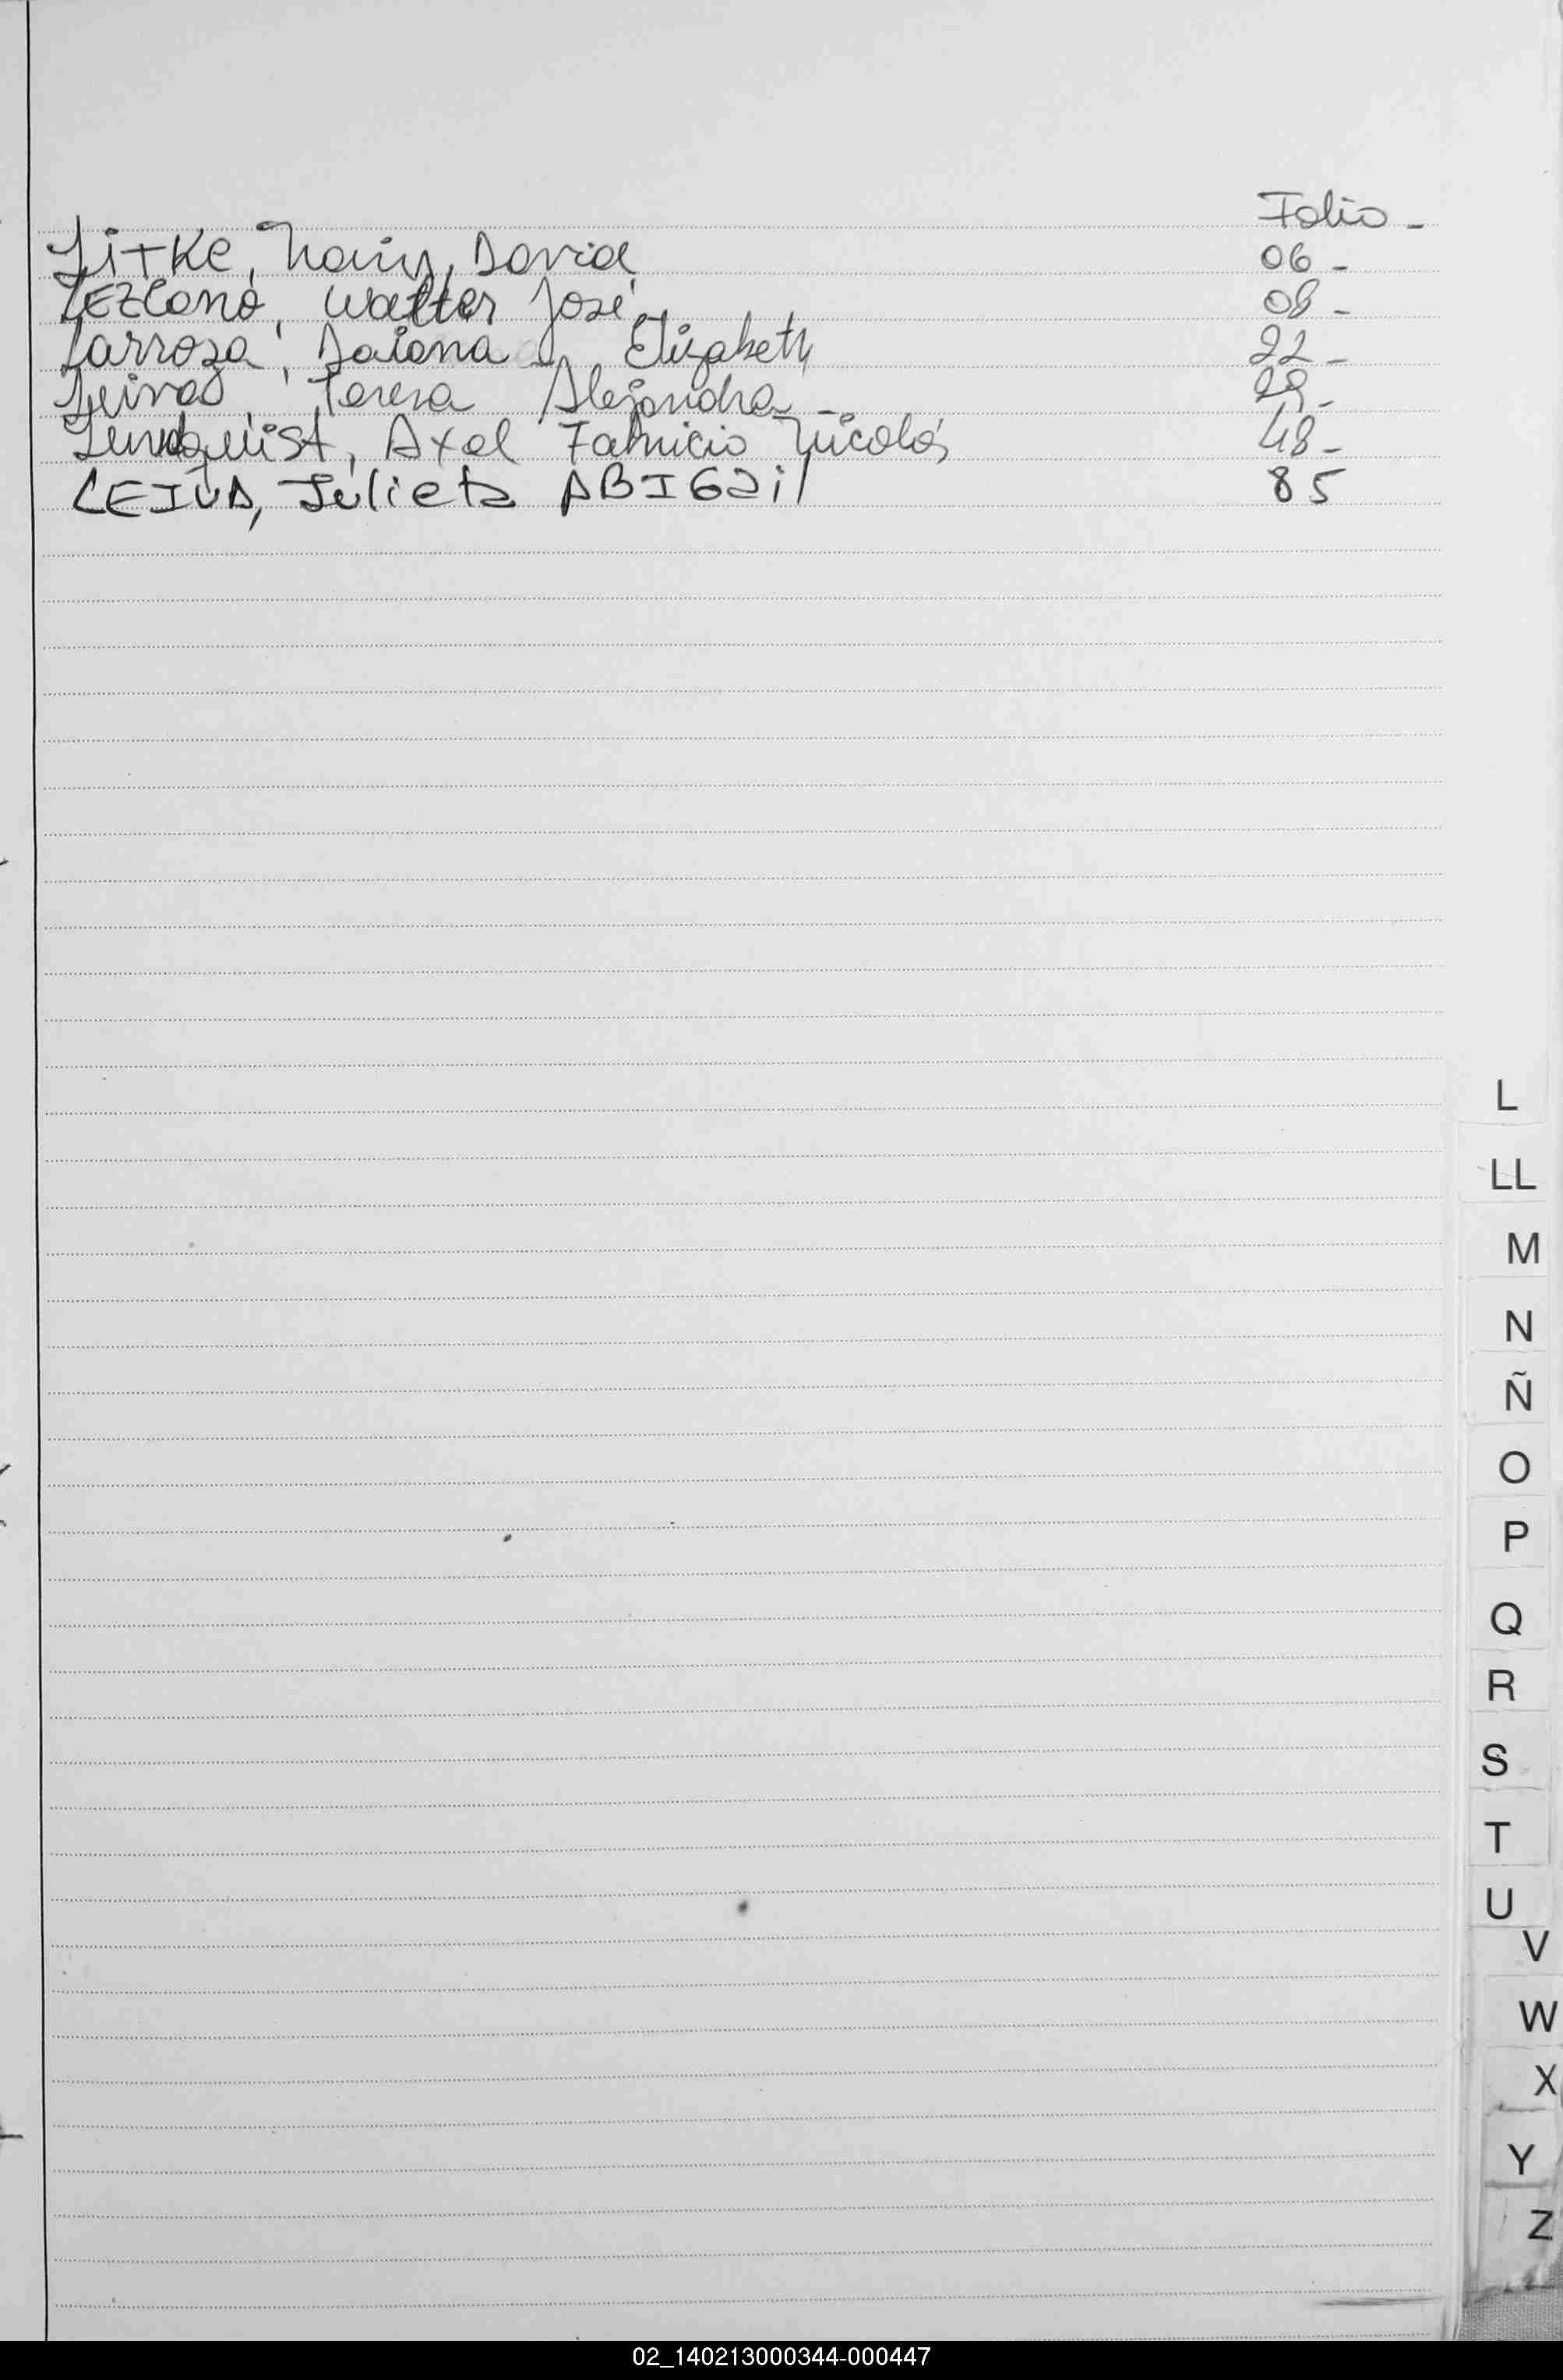 Folio -
Litke, Nair, David 06 -
LEZCano, Walter José 08 -
Larroza, Daiana Elizabeth 22 -
Leiva, Teresa Alejandra - 29 -
Lundquist, Axel Fabricio Nicolás 48 -
LEIVA, Julieta ABIGail 85
L
LL
M
N
Ñ
O
P
Q
R
S
T
U
V
W
X
Y
Z
02_140213000344-000447